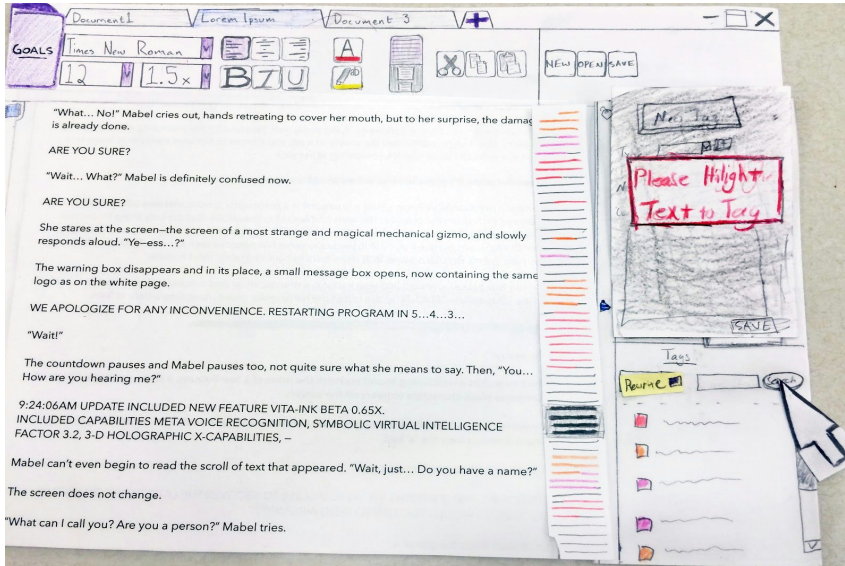 Document1
Lorem Ipsum
Document 3
GOALS
Times New Roman
A
12
1.5x
B I U
ab
NEW
OPEN
SAVE
"What... No!" Mabel cries out, hands retreating to cover her mouth, but to her surprise, the damag
is already done.
ARE YOU SURE?
"Wait... What?" Mabel is definitely confused now.
ARE YOU SURE?
She stares at the screen—the screen of a most strange and magical mechanical gizmo, and slowly
responds aloud. "Ye—ess...?"
The warning box disappears and in its place, a small message box opens, now containing the same
logo as on the white page.
WE APOLOGIZE FOR ANY INCONVENIENCE. RESTARTING PROGRAM IN 5...4...3...
"Wait!"
The countdown pauses and Mabel pauses too, not quite sure what she means to say. Then, "You...
How are you hearing me?"
9:24:06AM UPDATE INCLUDED NEW FEATURE VITA-INK BETA 0.65X.
INCLUDED CAPABILITIES META VOICE RECOGNITION, SYMBOLIC VIRTUAL INTELLIGENCE
FACTOR 3.2, 3-D HOLOGRAPHIC X-CAPABILITIES, —
Mabel can't even begin to read the scroll of text that appeared. "Wait, just... Do you have a name?"
The screen does not change.
"What can I call you? Are you a person?" Mabel tries.
New Tag
Please Hilight
Text to Tag
SAVE
Tags
Search